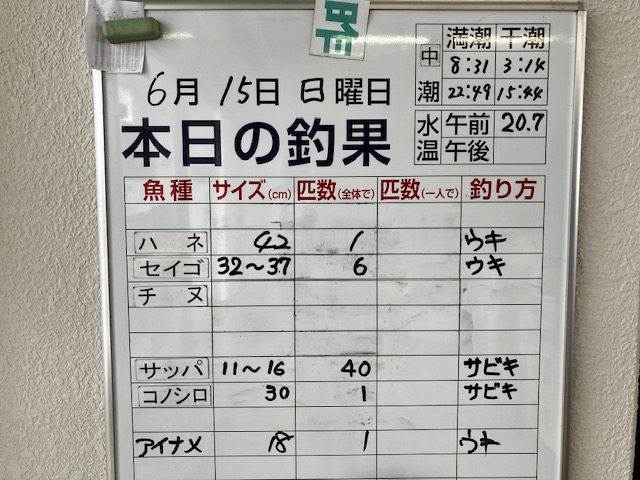 昨
満潮 干潮
中潮 8:31 3:14
22:49 15:44
6月 15日 日曜日
水温 午前 20.7
午後
本日の釣果
魚種 サイズ(cm) 匹数(全体で) 匹数(一人で) 釣り方
ハネ 42 1 ウキ
セイゴ 32〜37 6 ウキ
チヌ
サッパ 11〜16 40 サビキ
コノシロ 30 1 サビキ
アイナメ 18 1 ウキ